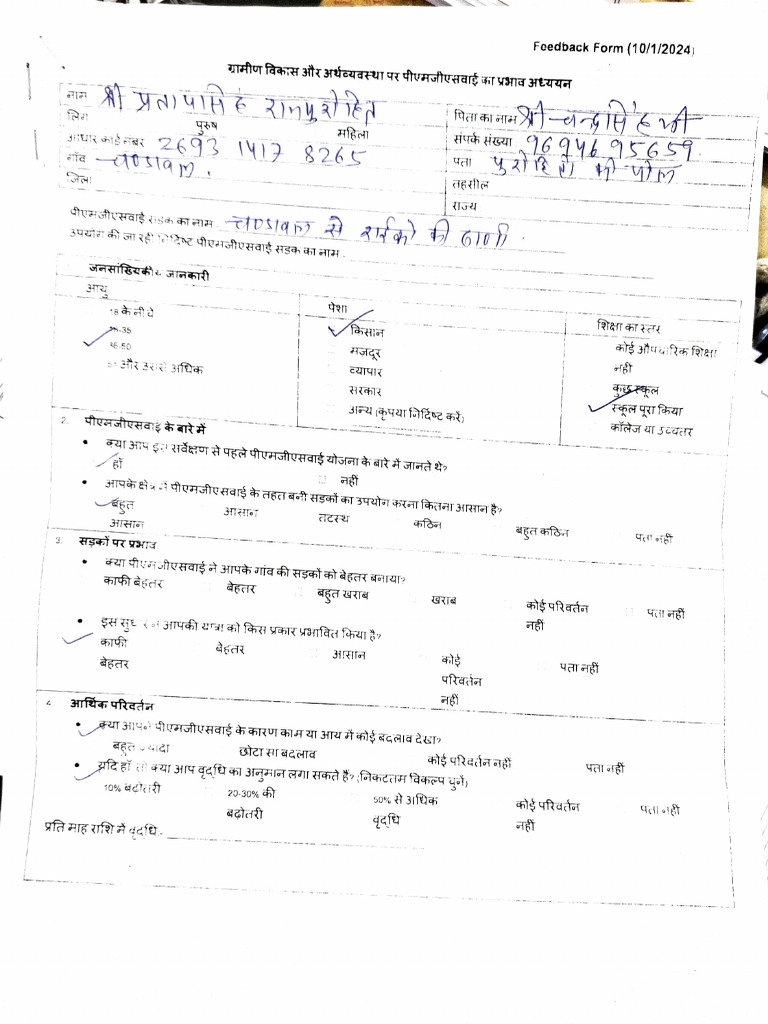 Feedback Form (10/1/2024)
ग्रामीण विकास और अर्थव्यवस्था पर पीएमजीएसवाई का प्रभाव अध्ययन
नाम श्री प्रतापसिंह राजपुरोहित पिता का नाम श्री चन्द्रसिंह जी
लिंग पुरुष महिला संपर्क संख्या 9694695659
आधार कार्ड नंबर 2693 1417 8265 पता पुरोहितो की पोल
गाँव चण्डावल. तहसील
जिला राज्य
पीएमजीएसवाई सड़क का नाम चण्डावल से राईको की ढाणी.
उपयोग की जा रही निर्दिष्ट पीएमजीएसवाई सड़क का नाम
जनसांख्यिकीय जानकारी
आयु पेशा शिक्षा का स्तर
18 के नीचे किसान कोई औपचारिक शिक्षा
-35 मजदूर नहीं
36-50 व्यापार कुछ स्कूल
51 और उससे अधिक सरकार स्कूल पूरा किया
अन्य (कृपया निर्दिष्ट करें) कॉलेज या उच्चतर
2. पीएमजीएसवाई के बारे में
• क्या आप इस सर्वेक्षण से पहले पीएमजीएसवाई योजना के बारे में जानते थे?
हाँ नहीं
• आपके क्षेत्र में पीएमजीएसवाई के तहत बनी सड़कों का उपयोग करना कितना आसान है?
बहुत आसान तटस्थ कठिन बहुत कठिन पता नहीं
आसान
3. सड़कों पर प्रभाव
• क्या पीएमजीएसवाई ने आपके गांव की सड़कों को बेहतर बनाया?
काफी बेहतर बेहतर बहुत खराब खराब कोई परिवर्तन पता नहीं
नहीं
• इस सुधार ने आपकी यात्रा को किस प्रकार प्रभावित किया है?
काफी बेहतर आसान कोई पता नहीं
बेहतर परिवर्तन
नहीं
4. आर्थिक परिवर्तन
• क्या आपने पीएमजीएसवाई के कारण काम या आय में कोई बदलाव देखा?
बहुत ज्यादा छोटा सा बदलाव कोई परिवर्तन नहीं पता नहीं
• यदि हाँ तो क्या आप वृद्धि का अनुमान लगा सकते हैं? (निकटतम विकल्प चुनें)
10% बढोतरी 20-30% की 50% से अधिक कोई परिवर्तन पता नहीं
बढोतरी वृद्धि नहीं
प्रति माह राशि में वृद्धि:-